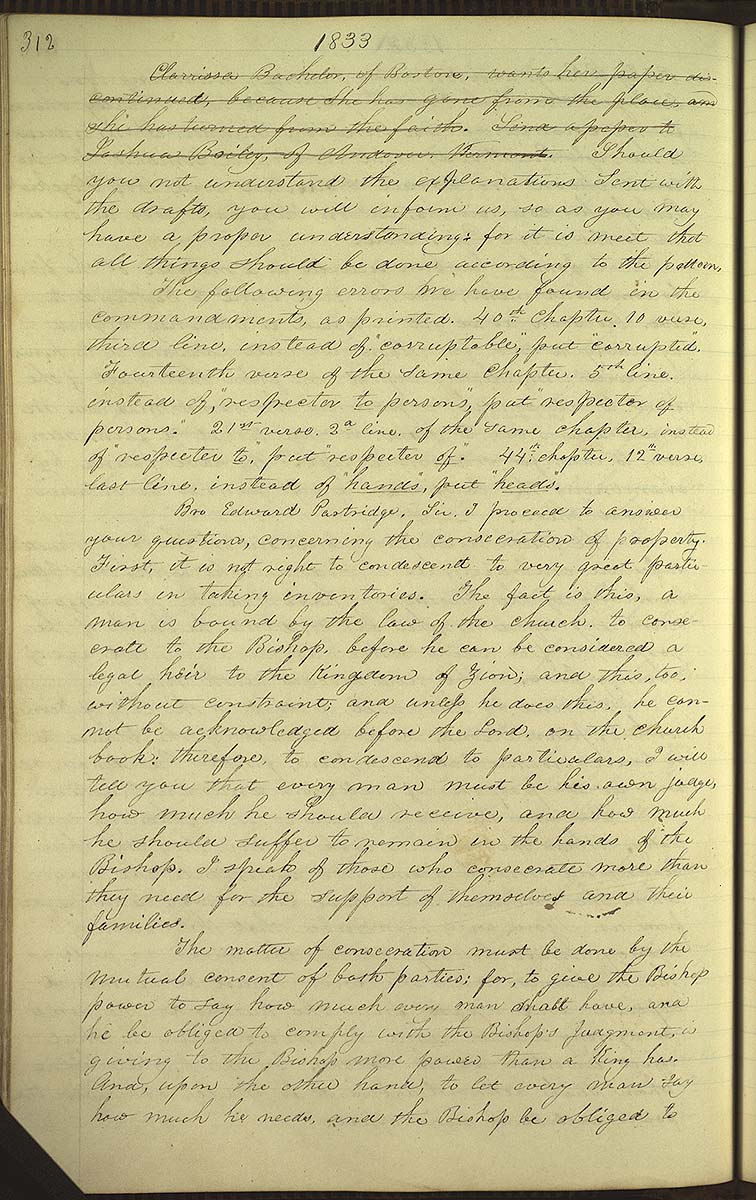 312
1833
Clarrissa Bachelor, of Boston, wants her paper dis-
continued, because She has gone from the place, and
she has turned from the faith. Send a paper to
Joshua Bailey, of Andover Vermont. Should
you not understand the explanations Sent with
the drafts, you will inform us, so as you may
have a proper understanding: for it is meet that
all things should be done according to the pattern.
The following errors we have found in the
commandments, as printed. 40th Chapter. 10 verse,
third line, instead of "corruptable", put "corrupted".
Fourteenth verse of the same Chapter. 5th line.
instead of, "respecter to persons", put "respecter of
persons." 21st verse. 2d line. of the same chapter, instead
of "respecter to," put "respecter of". 44th chapter, 12th verse,
last line. instead of "hands", put "heads".
Bro Edward Partridge, Sir, I proceed to answer
your questions, concerning the consecration of property.
First, it is not right to condescend to very great partic-
ulars in taking inventories. The fact is this, a
man is bound by the law of the church. to conse-
crate to the Bishop, before he can be considered a
legal heir to the Kingdom of Zion; and this, too,
without constraint; and unless he does this, he can-
not be acknowledged before the Lord, on the church
book: therefore, to condescend to particulars, I will
tell you that every man must be his own judge,
how much he should receive, and how much
he should suffer to remain in the hands of the
Bishop. I speak of those who consecrate more than
they need for the support of themselves and their
families.
The matter of consecration must be done by the
mutual consent of both parties; for, to give the Bishop
power to say how much every man shall have, and
he be obliged to comply with the Bishop's judgment, is
giving to the Bishop more power than a King has.
And, upon the other hand, to let every man say
how much he needs, and the Bishop be obliged to